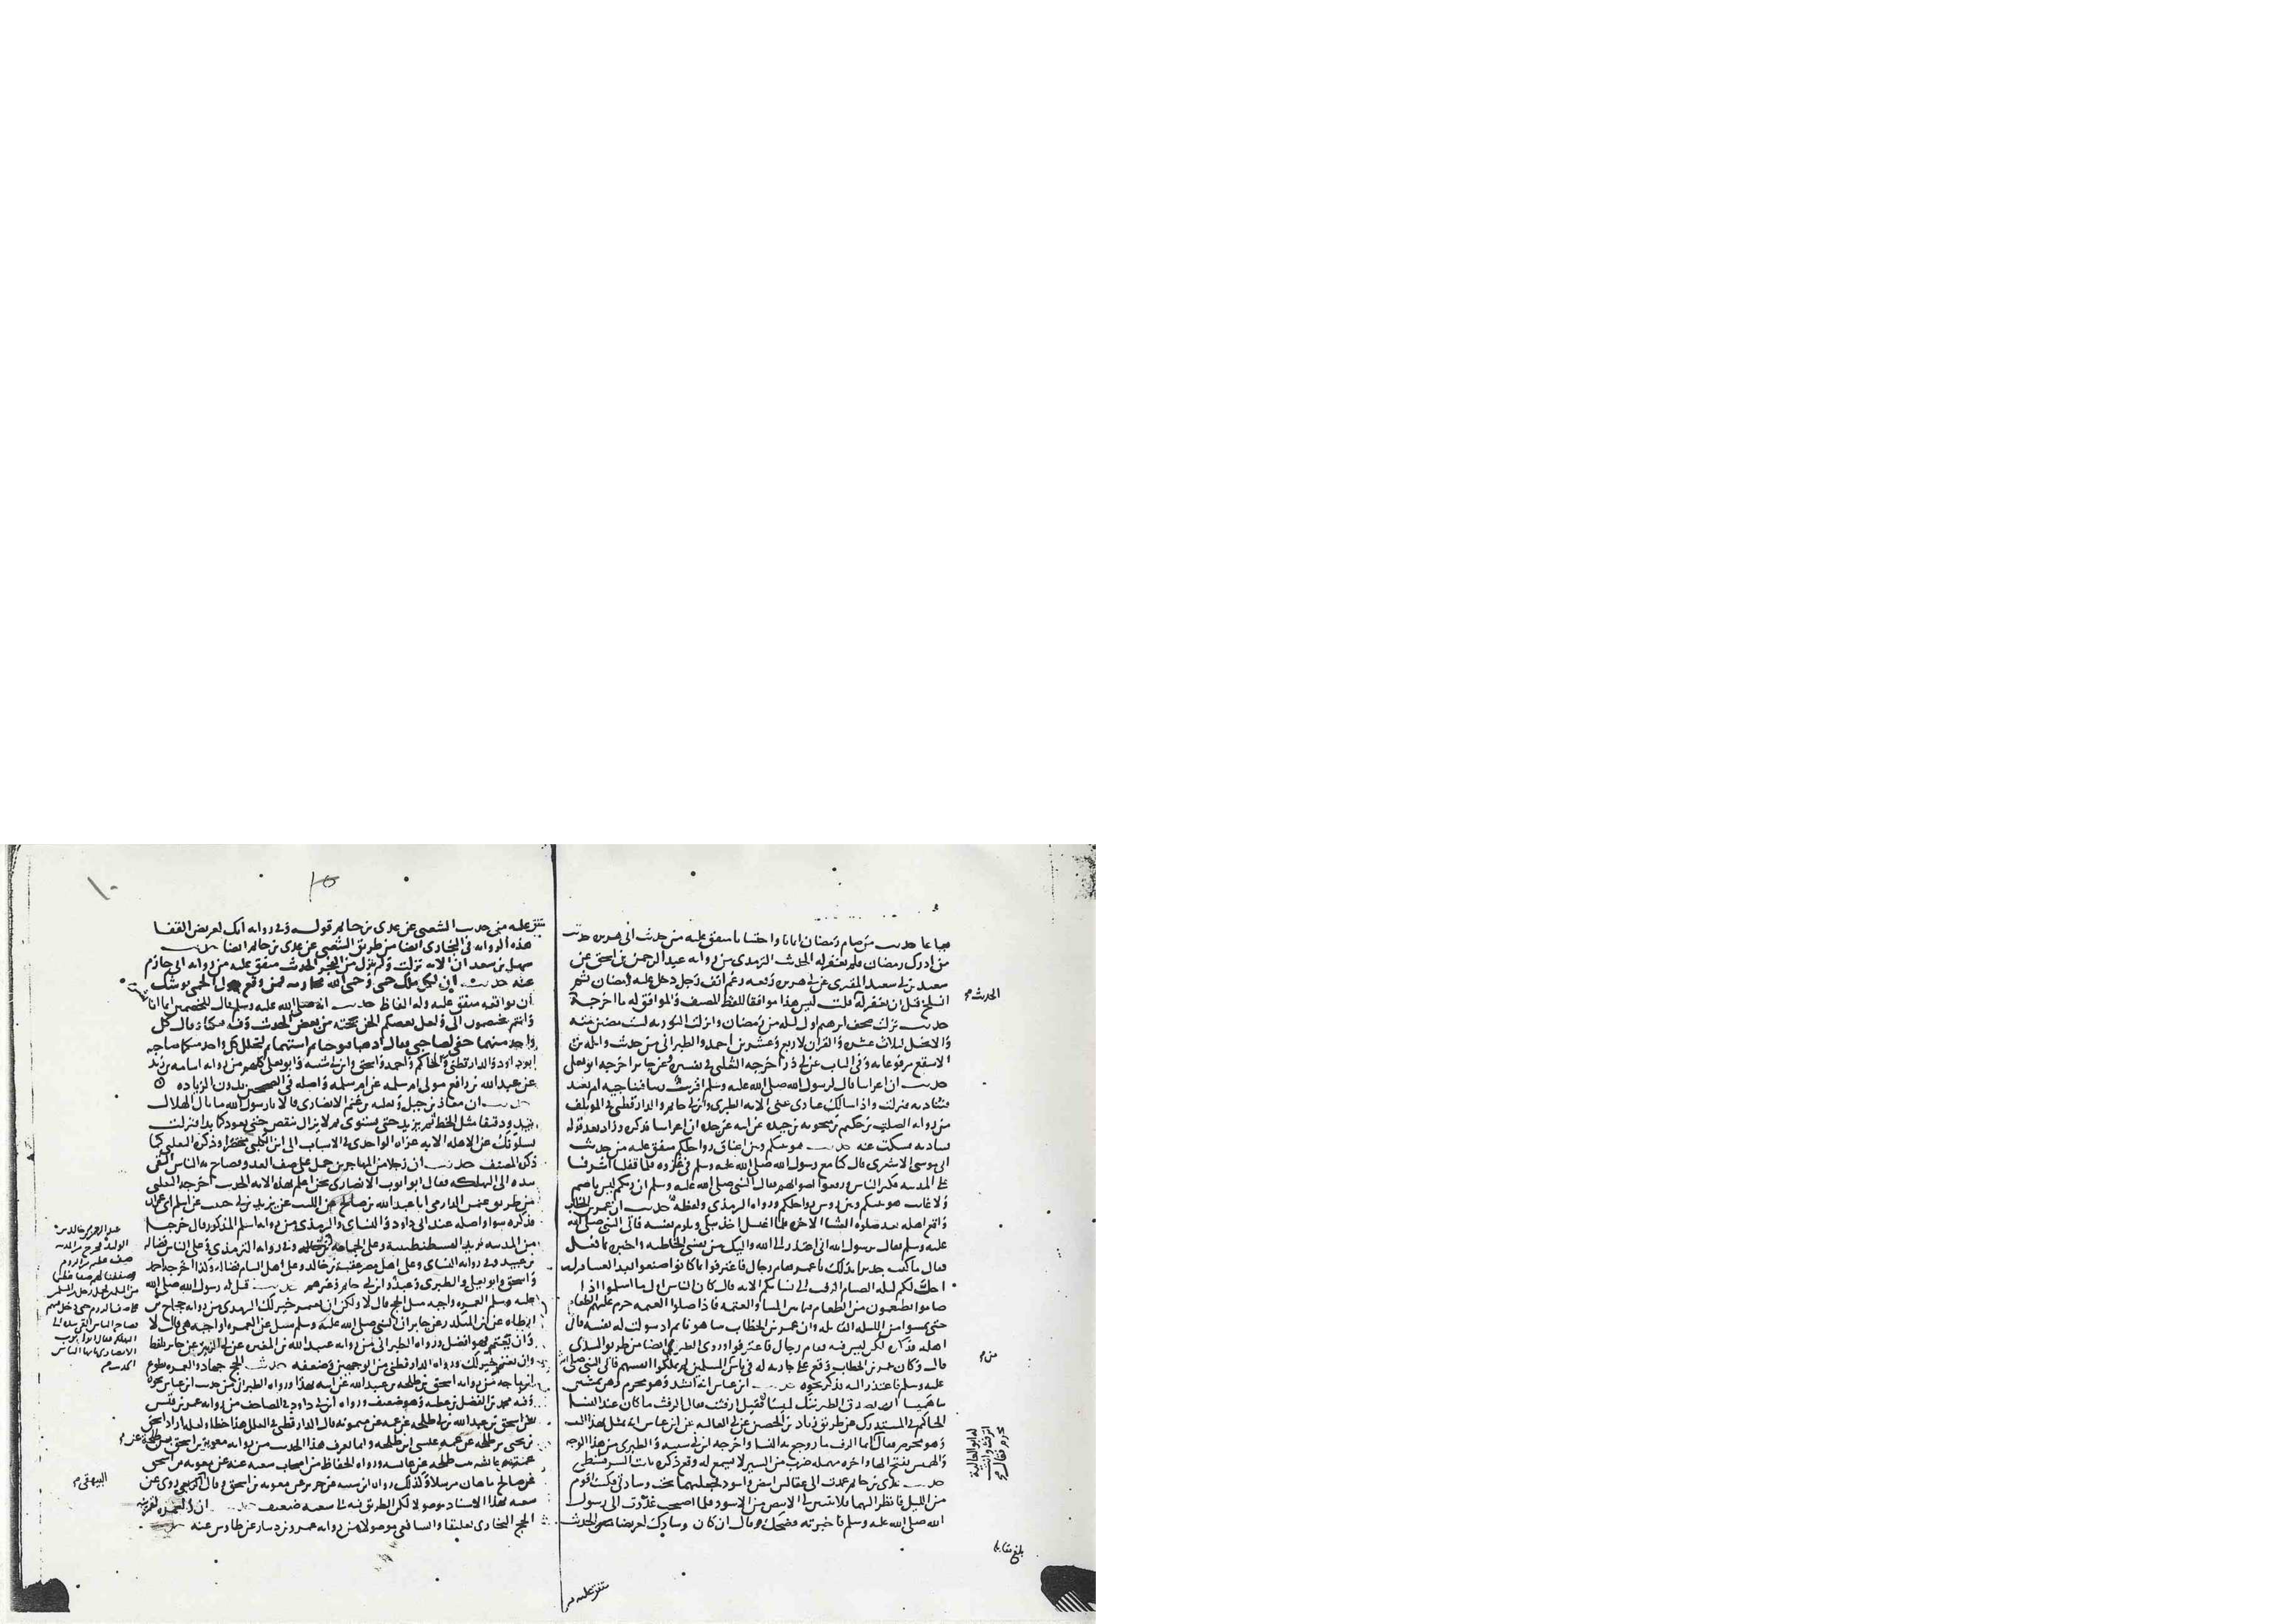 حديث من صام رمضان ايمانا واحتسابا متفق عليه من حديث ابى هريره حديث
من ادرك رمضان فلم يغفر له الحديث الترمذى من روايه عبد الرحمن بن اسحق عن
سعيد بن ابى سعيد المقبرى عن ابى هريره رفعه رغم انف رجل دخل عليه رمضان ثم
انسلخ قبل ان يغفر له قلت ليس هذا موافقا للفظ المصنف والموافق له ما اخرجه
الحديث
حديث نزلت صحف ابرهيم اول ليله من رمضان وانزلت التوريه لست مضين منه
والانجيل لثلاث عشره والقران لاربع وعشرين احمد والطبرانى من حديث واثله بن
الاسقع مرفوعا به وفى الباب عن ابى ذر اخرجه الثعلبى فى تفسيره وعن جابر اخرجه ابو يعلى
حديث ان اعرابيا قال لرسول الله صلى الله عليه وسلم اقريب ربنا فنناجيه ام بعيد
فنناديه فنزلت واذا سالك عبادى عنى الايه الطبرى وابن ابى حاتم والدارقطنى فى الموتلف
من روايه الصلب بن حكيم بن معويه بن حيده عن ابيه عن جده ان اعرابيا فذكره وزاد بعد قوله
فناديه فسكت عنه حديث هو بينكم وبين اعناق رواحلكم متفق عليه من حديث
ابى موسى الاشعرى قال كنا مع رسول الله صلى الله عليه وسلم فى غزوه فلما قفلنا اشرفنا
على المدينه فكبر الناس ورفعوا اصواتهم فقال النبى صلى الله عليه وسلم ان ربكم ليس باصم
ولا غائب هو بينكم وبين روس رواحلكم ورواه الترمذى ولفظه حديث ان عمر بن الخطاب
واقع اهله بعد صلوه العشا الاخره فلما اغتسل اخذ يبكى ويلوم نفسه فاتى النبى صلى الله
عليه وسلم فقال يرسول الله انى اعتذر الى الله واليك من نفسى الخاطيه واخبره بما فعل
فقال ما كنت جديرا بذلك يا عمر فقام رجال فاعترفوا بما كانوا صنعوا بعد العشا فنزلت
احل لكم ليله الصيام الرفث الى نسائكم الايه قال كان الناس اول ما اسلموا اذا
صاموا يطعمون من الطعام فيما بين المسا والعتمه فاذا صلوا العتمه حرم عليهم الطعام
حتى يمسوا من الليله القابله وان عمر بن الخطاب بينا هو نائم اذ سولت له نفسه فاتى
اهله فذكره لكن ليس فيه فقام رجال فاعترفوا وروى الطبرى ايضا من طريق السدى
من
قال وكان عمر بن الخطاب وقع على جاريه له فى ناس من المسلمين لم يملكوا انفسهم فاتى النبى صلى الله
عليه وسلم فاعتذر اليه فذكر نحوه حديث ابن عباس انه انشد وهو محرم وهن يمشين
بنا هميسا ان تصدق الطير ننك لميسا فقيل ارفثت فقال الرفث ما كان عند النسا
الحاكم فى المستدرك من طريق زياد بن الحصين عن ابى العاليه عن ابن عباس انه تمثل بهذا البيت
وهو محرم فقال انما الرفث ما روجع به النسا واخرجه ابن ابى شيبه والطبرى من هذا الوجه
والهميس بفتح الها واخره مهمله ضرب من السير لا يسمع له وقع
حديث عدى بن حاتم عمدت الى عقالين ابيض واسود فجعلتهما تحت وسادتى فكنت اقوم
من الليل فانظر اليهما فلا يتبين لى الابيض من الاسود فلما اصبحت غدوت الى رسول
الله صلى الله عليه وسلم فاخبرته فضحك وقال ان كان وسادك لعريضا الحديث
بلغ مقابله
متفق عليه
متفق عليه من حديث الشعبى عن عدى بن حاتم قوله وفى روايه انك لعريض القفا
هذه الروايه فى البخارى ايضا من طريق الشعبى عن عدى بن حاتم ايضا حديث
سهل بن سعد ان الايه نزلت ولم ينزل من الفجر الحديث متفق عليه من روايه ابى حازم
عنه حديث ان لكل ملك حمى وحمى الله محارمه فمن وقع حول الحمى يوشك
ان يواقعه متفق عليه وله الفاظ حديث انه صلى الله عليه وسلم قال للخصمين انما انا
وانتم تختصمون الى ولعل بعضكم الحن بحجته من بعض الحديث وفيه فبكيا وقال كل
واحد منهما حقى لصاحبى فقال اذهبا فتوخيا ثم استهما ثم ليحلل كل واحد منكما صاحبه
ابو داود والدارقطنى والحاكم واحمد واسحق وابن ابى شيبه وابو يعلى كلهم من روايه اسامه بن زيد
عن عبد الله بن رافع مولى ام سلمه عن ام سلمه واصله فى الصحيحين بدون الزياده
حديث ان معاذ بن جبل وثعلبه بن غنم الانصارى قالا يا رسول الله ما بال الهلال
يبدو دقيقا مثل الخيط ثم يزيد حتى يستوى ثم لا يزال ينقص حتى يعود كما بدا فنزلت
يسئلونك عن الاهله الايه عزاه الواحدى فى الاسباب الى ابن الكلبى مختصرا وذكره الثعلبى كما
ذكره المصنف حديث ان رجلا من المهاجرين حمل على صف العدو فصاح به الناس القى
بيده الى التهلكه فقال ابو ايوب الانصارى نحن اعلم بهذه الايه الحديث اخرجه الثعلبى
من طريق عثمن الدارمى انا عبد الله بن صالح عن الليث عن يزيد بن ابى حبيب عن اسلم ابى عمران
فذكره سوا واصله عند ابى داود والنسائى والترمذى من روايه اسلم المذكور قال خرجنا
من المدينه نريد القسطنطينيه وعلى الجماعه وفى روايه الترمذى وعلى الناس فضاله
بن عبيد وفى روايه النسائى وعلى اهل مصر عقبه بن خالد وعلى اهل الشام فضاله وكذا اخرجه احمد
واسحق وابو يعلى والطبرى وعبد وابن ابى حاتم وغيرهم حديث قيل له رسول الله صلى الله
عليه وسلم العمره واجبه مثل الحج قال لا ولكن ان تعتمر خير لك الترمذى من روايه حجاج بن
ارطاه عن ابن المنكدر عن جابر ان النبى صلى الله عليه وسلم سئل عن العمره اواجبه هى قال لا
وان تعتمر هو افضل ورواه الطبرانى من روايه عبيد الله بن المغيره عن ابى الزبير عن جابر بلفظ
وان تعتمر خير لك ورواه الدارقطنى من الوجهين وضعفه حديث الحج جهاد والعمره تطوع
ابن ماجه من روايه اسحق بن طلحه بن عبيد الله عن ابيه بهذا ورواه الطبرانى من حديث ابن عباس نحوه
وفيه محمد بن الفضل بن عطيه وهو ضعيف ورواه ابن ابى داود فى المصاحف من روايه عمر بن قيس
عن اسحق بن عبد الله بن ابى طلحه عن عمه قال الدارقطنى فى العلل هذا خطا ولعله اراد اسحق
بن يحيى بن طلحه عن عمه عيسى ابن طلحه وانما يعرف هذا الحديث من روايه معويه بن اسحق بن طلحه عن
عمته عائشه بنت طلحه عن عائشه ورواه الحفاظ من اصحاب شعبه عنه عن معويه بن اسحق
عن ابى صالح ماهان مرسلا وكذلك رواه ابن ابى شيبه عن جرير عن معويه بن اسحق وقال روى عن
البيهقى
شعبه بهذا الاسناد موصولا لكن الطريق فيه الى شعبه ضعيف حديث ان العمره لقرينه
الحج البخارى تعليقا والشافعى موصولا من روايه عمرو بن دينار عن طاوس عنه